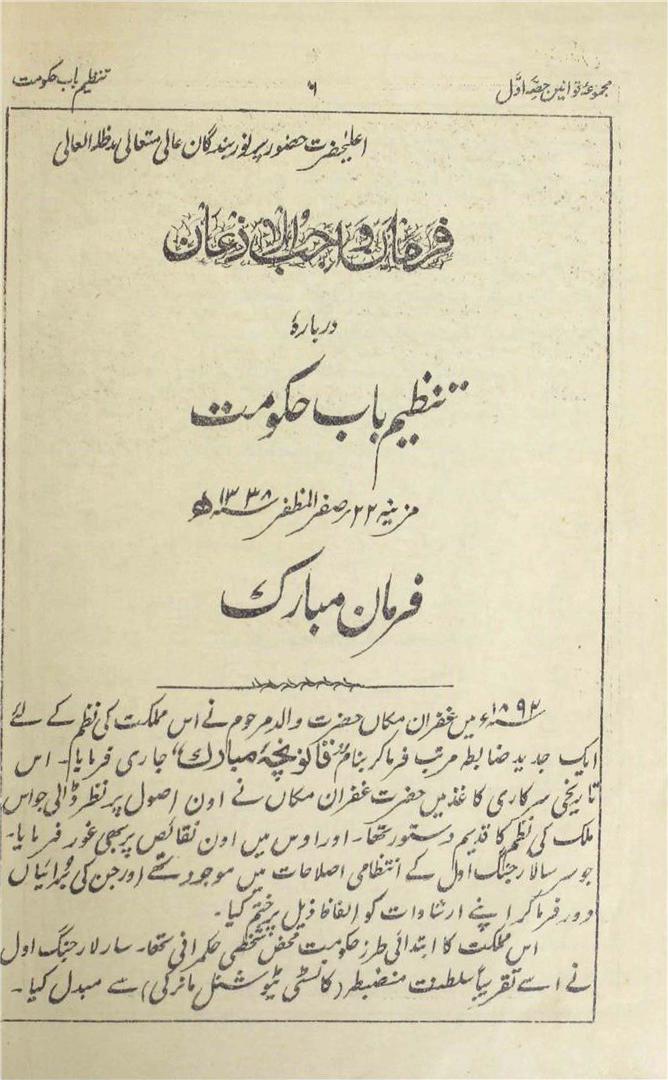 مجموعۂ قوانین حصّہ اوّل
۶
تنظیم باب حکومت
اعلیٰحضرت حضور پر نور بندگان عالی متعالی مدظلہ العالی
فرمان واجب الاذعان
دربارۂ
تنظیم باب حکومت
مزینہ ۲۲ ر صفر المظفر سنہ ۱۳۳۸ ھ
فرمان مبارک
سنہ ۱۸۹۳ء میں غفران مکاں حضرت والد مرحوم نے اس مملکت کی نظم کے لئے
ایک جدید ضابطہ مرتب فرما کر بنام "قانونچۂ مبارک" جاری فرمایا۔ اس
تاریخی سرکاری کاغذ میں حضرت غفران مکاں نے اون اصول پر نظر ڈالی جو اس
ملک کی نظم کا قدیم دستور تھا۔ اور اوس میں اون نقائص پر بھی غور فرمایا۔
جو سر سالار جنگ اول کے انتظامی اصلاحات میں موجود تھے اور جن کی بُرائیاں
دور فرما کر اپنے ارشادات کو الفاظ ذیل پر ختم کیا۔
اس مملکت کا ابتدائی طرز حکومت محض شخصی حکمرانی تھا۔ سارلار جنگ اول
نے اسے تقریباً سلطنت منضبطہ (کانسٹی ٹیوشنل مانرکی) سے مبدل کیا۔